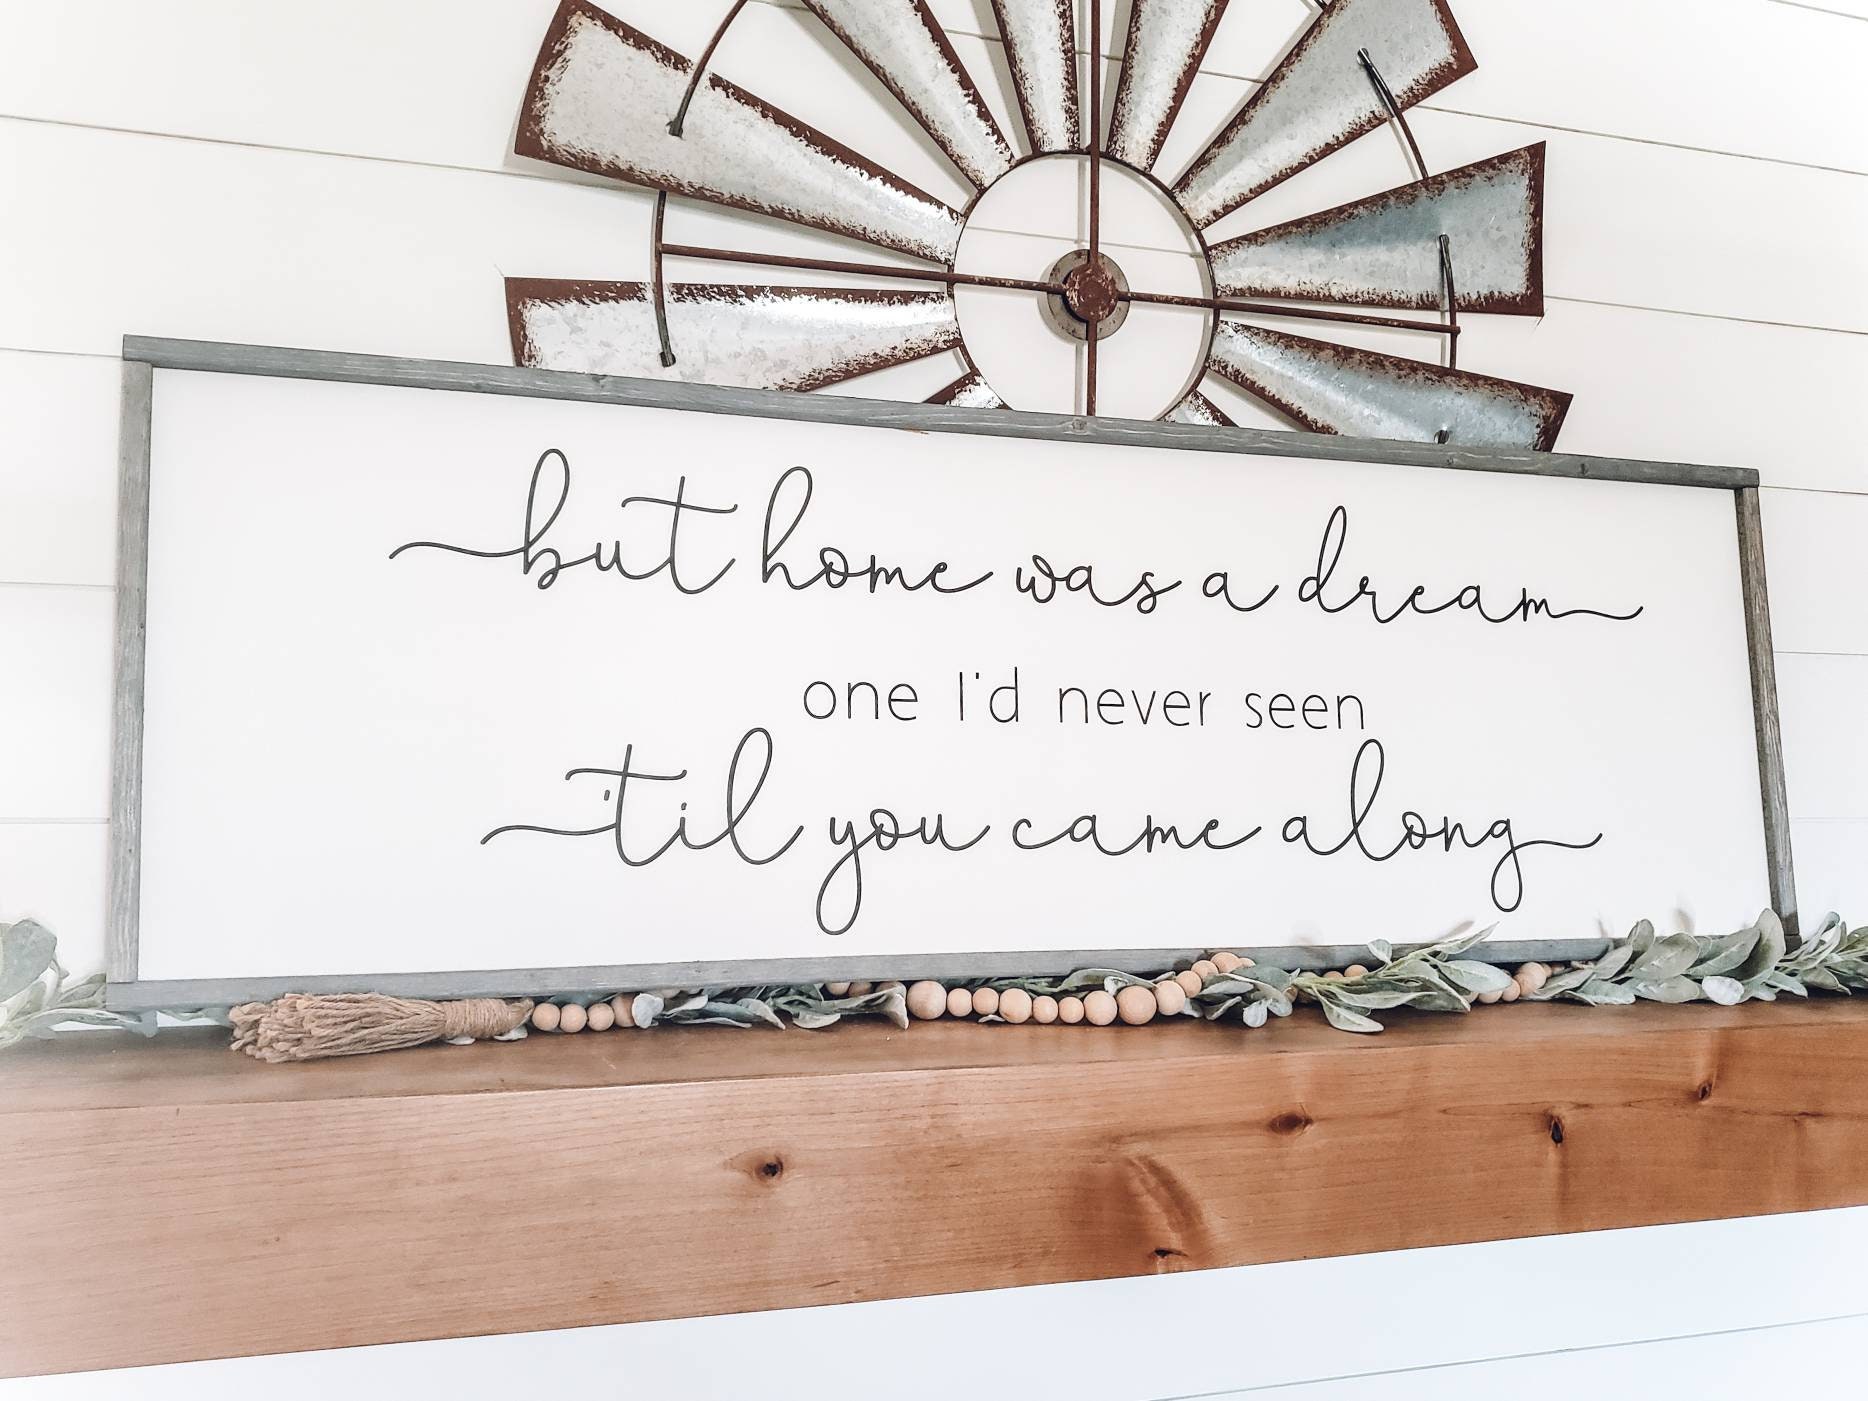 but home was a dream
one I'd never seen
'til you came along